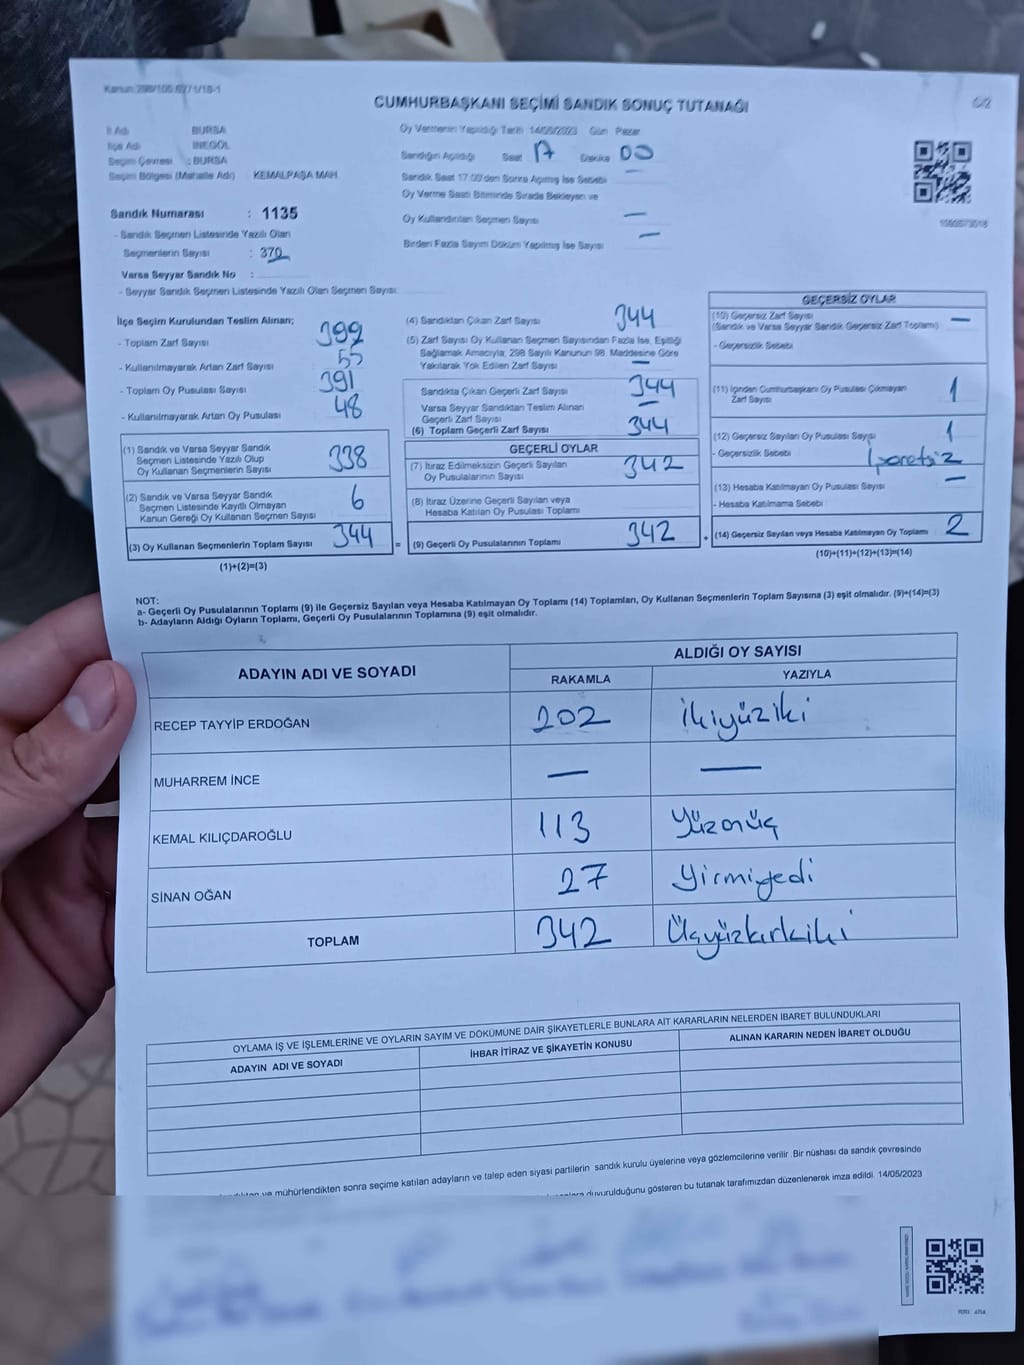 Kanun:298/105 /271/18-1
CUMHURBAŞKANI SEÇİMİ SANDIK SONUÇ TUTANAĞI
İl Adı BURSA
İlçe Adı İNEGÖL
Seçim Çevresi : BURSA
Seçim Bölgesi (Mahalle Adı) KEMALPAŞA MAH.
Oy Vermenin Yapıldığı Tarih 14/05/2023 Gün Pazar
Sandığın Açıldığı Saat 17 Dakika 00
Sandık Saat 17:00'den Sonra Açılmış İse Sebebi —
Oy Verme Saati Bitiminde Sırada Bekleyen ve
Oy Kullandırılan Seçmen Sayısı —
Birden Fazla Sayım Döküm Yapılmış İse Sayısı —
Sandık Numarası : 1135
- Sandık Seçmen Listesinde Yazılı Olan
Seçmenlerin Sayısı : 370
Varsa Seyyar Sandık No :
- Seyyar Sandık Seçmen Listesinde Yazılı Olan Seçmen Sayısı:
İlçe Seçim Kurulundan Teslim Alınan;
- Toplam Zarf Sayısı 399
- Kullanılmayarak Artan Zarf Sayısı 55
- Toplam Oy Pusulası Sayısı 391
- Kullanılmayarak Artan Oy Pusulası 48
(1) Sandık ve Varsa Seyyar Sandık
Seçmen Listesinde Yazılı Olup
Oy Kullanan Seçmenlerin Sayısı 338
(2) Sandık ve Varsa Seyyar Sandık
Seçmen Listesinde Kayıtlı Olmayan
Kanun Gereği Oy Kullanan Seçmen Sayısı 6
(3) Oy Kullanan Seçmenlerin Toplam Sayısı 344
(1)+(2)=(3)
(4) Sandıktan Çıkan Zarf Sayısı 344
(5) Zarf Sayısı Oy Kullanan Seçmen Sayısından Fazla İse, Eşitliği
Sağlamak Amacıyla, 298 Sayılı Kanunun 98. Maddesine Göre
Yakılarak Yok Edilen Zarf Sayısı —
Sandıkta Çıkan Geçerli Zarf Sayısı 344
Varsa Seyyar Sandıktan Teslim Alınan —
Geçerli Zarf Sayısı
(6) Toplam Geçerli Zarf Sayısı 344
GEÇERLİ OYLAR
(7) İtiraz Edilmeksizin Geçerli Sayılan 342
Oy Pusulalarının Sayısı
(8) İtiraz Üzerine Geçerli Sayılan veya
Hesaba Katılan Oy Pusulası Toplamı —
= (9) Geçerli Oy Pusulalarının Toplamı 342
GEÇERSİZ OYLAR
(10) Geçersiz Zarf Sayısı —
(Sandık ve Varsa Seyyar Sandık Geçersiz Zarf Toplamı)
- Geçersizlik Sebebi
(11) İçinden Cumhurbaşkanı Oy Pusulası Çıkmayan 1
Zarf Sayısı
(12) Geçersiz Sayılan Oy Pusulası Sayısı 1
- Geçersizlik Sebebi İşaretsiz
(13) Hesaba Katılmayan Oy Pusulası Sayısı —
- Hesaba Katılmama Sebebi
+ (14) Geçersiz Sayılan veya Hesaba Katılmayan Oy Toplamı 2
(10)+(11)+(12)+(13)=(14)
NOT:
a- Geçerli Oy Pusulalarının Toplamı (9) ile Geçersiz Sayılan veya Hesaba Katılmayan Oy Toplamı (14) Toplamları, Oy Kullanan Seçmenlerin Toplam Sayısına (3) eşit olmalıdır. (9)+(14)=(3)
b- Adayların Aldığı Oyların Toplamı, Geçerli Oy Pusulalarının Toplamına (9) eşit olmalıdır.
ADAYIN ADI VE SOYADI
ALDIĞI OY SAYISI
RAKAMLA YAZIYLA
RECEP TAYYİP ERDOĞAN 202 İkiyüziki
MUHARREM İNCE — —
KEMAL KILIÇDAROĞLU 113 Yüzonüç
SİNAN OĞAN 27 Yirmiyedi
TOPLAM 342 Üçyüzkırkiki
OYLAMA İŞ VE İŞLEMLERİNE VE OYLARIN SAYIM VE DÖKÜMÜNE DAİR ŞİKAYETLERLE BUNLARA AİT KARARLARIN NELERDEN İBARET BULUNDUKLARI
ADAYIN ADI VE SOYADI İHBAR İTİRAZ VE ŞİKAYETİN KONUSU ALINAN KARARIN NEDEN İBARET OLDUĞU
ve mühürlendikten sonra seçime katılan adayların ve talep eden siyasi partilerin sandık kurulu üyelerine veya gözlemcilerine verilir .Bir nüshası da sandık çevresinde
duyurulduğunu gösteren bu tutanak tarafımızdan düzenlenerek imza edildi. 14/05/2023